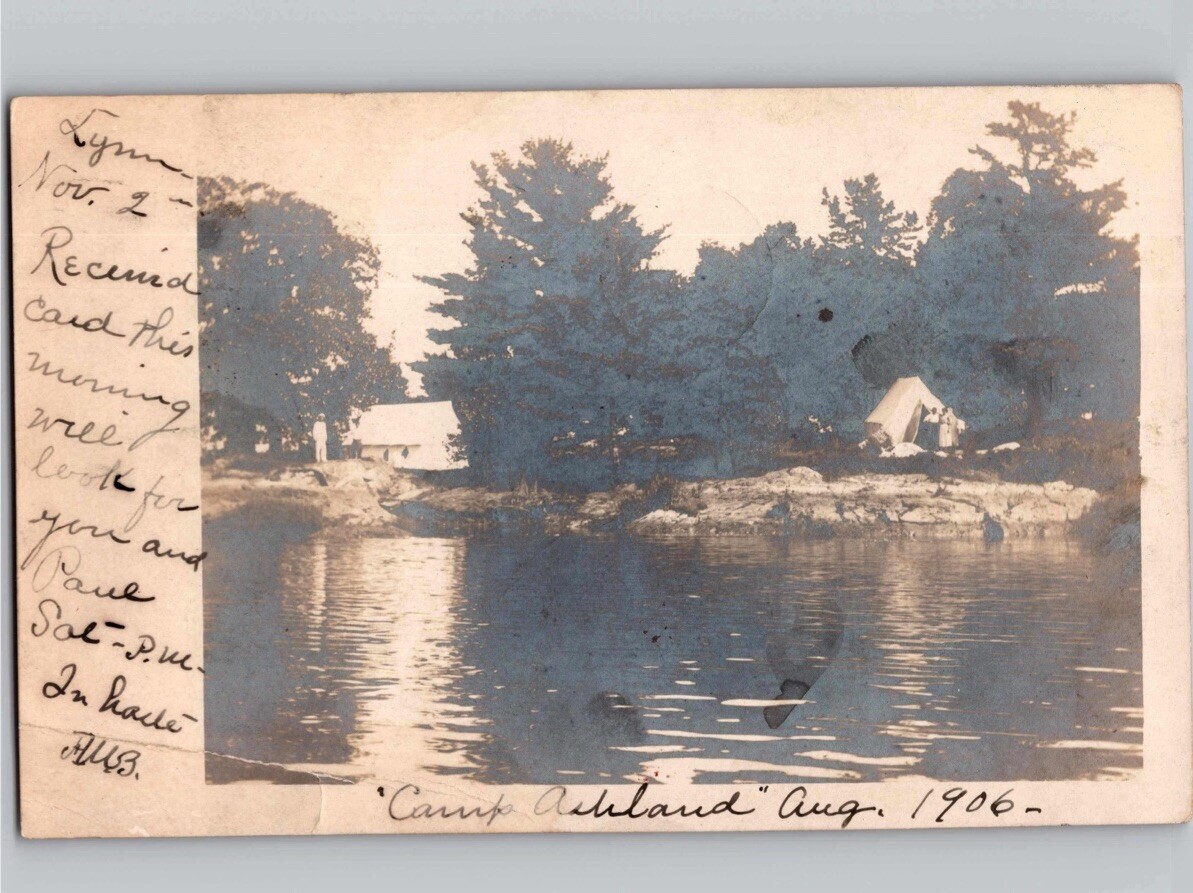 Lynn -
Nov. 2 -
Received
card this
morning
will
look for
you and
Paul
Sat - P.M.
In haste
A.W.B.
"Camp Ashland" Aug. 1906 -